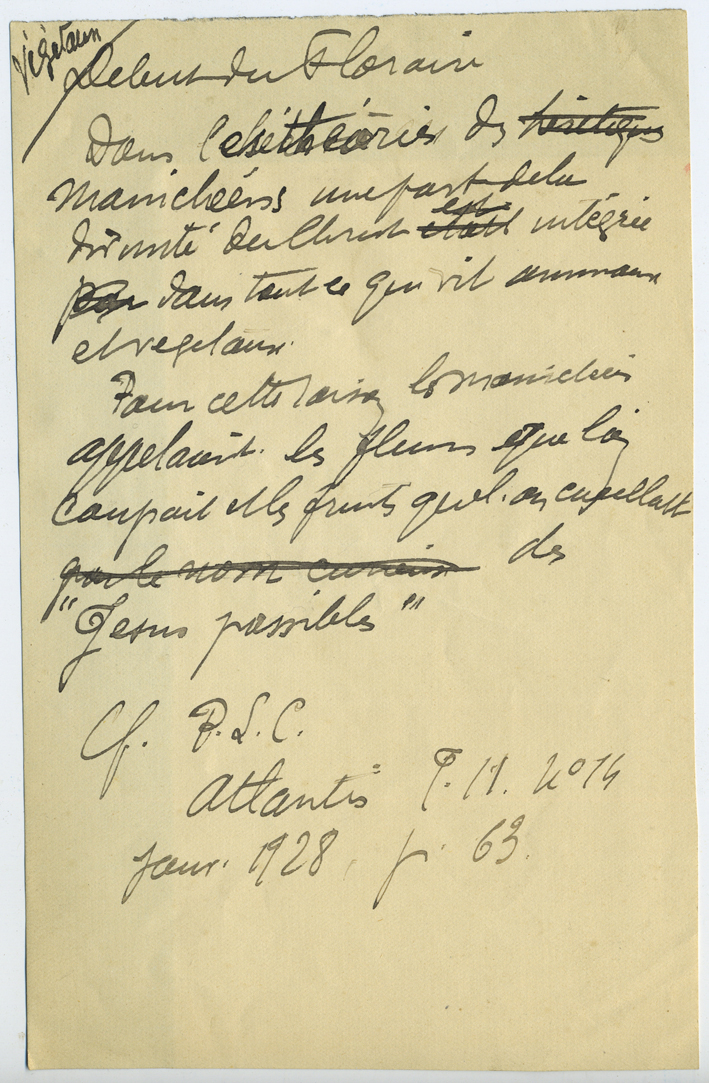 Végétaux
Début du Floraire
Dans les théories des hérétiques
Manichéens une part de la
divinité du Christ était est intégrée
par dans tout ce qui vit animaux
et végétaux.
Pour cette raison les manichéens
appelaient les fleurs que l'on
coupait et les fruits que l'on cueillait
par le nom curieux des
"Jésus possibles"
Cf. P.L.C.
Atlantis T. 11. no 14
Janv. 1928, p. 63.